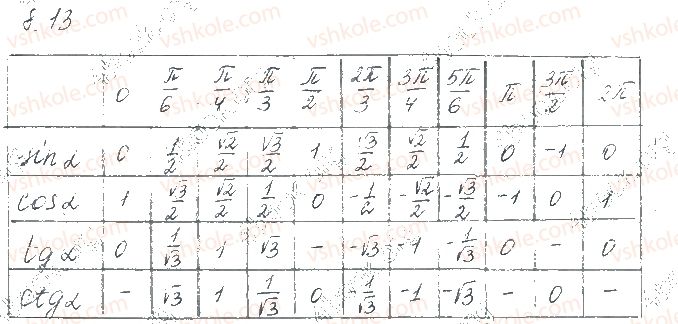 8.13
0 π/6 π/4 π/3 π/2 2π/3 3π/4 5π/6 π 3π/2 2π
sin α 0 1/2 √2/2 √3/2 1 √3/2 √2/2 1/2 0 -1 0
cos α 1 √3/2 √2/2 1/2 0 -1/2 -√2/2 -√3/2 -1 0 1
tg α 0 1/√3 1 √3 - -√3 -1 -1/√3 0 - 0
ctg α - √3 1 1/√3 0 -1/√3 -1 -√3 - 0 -
vshkole.com